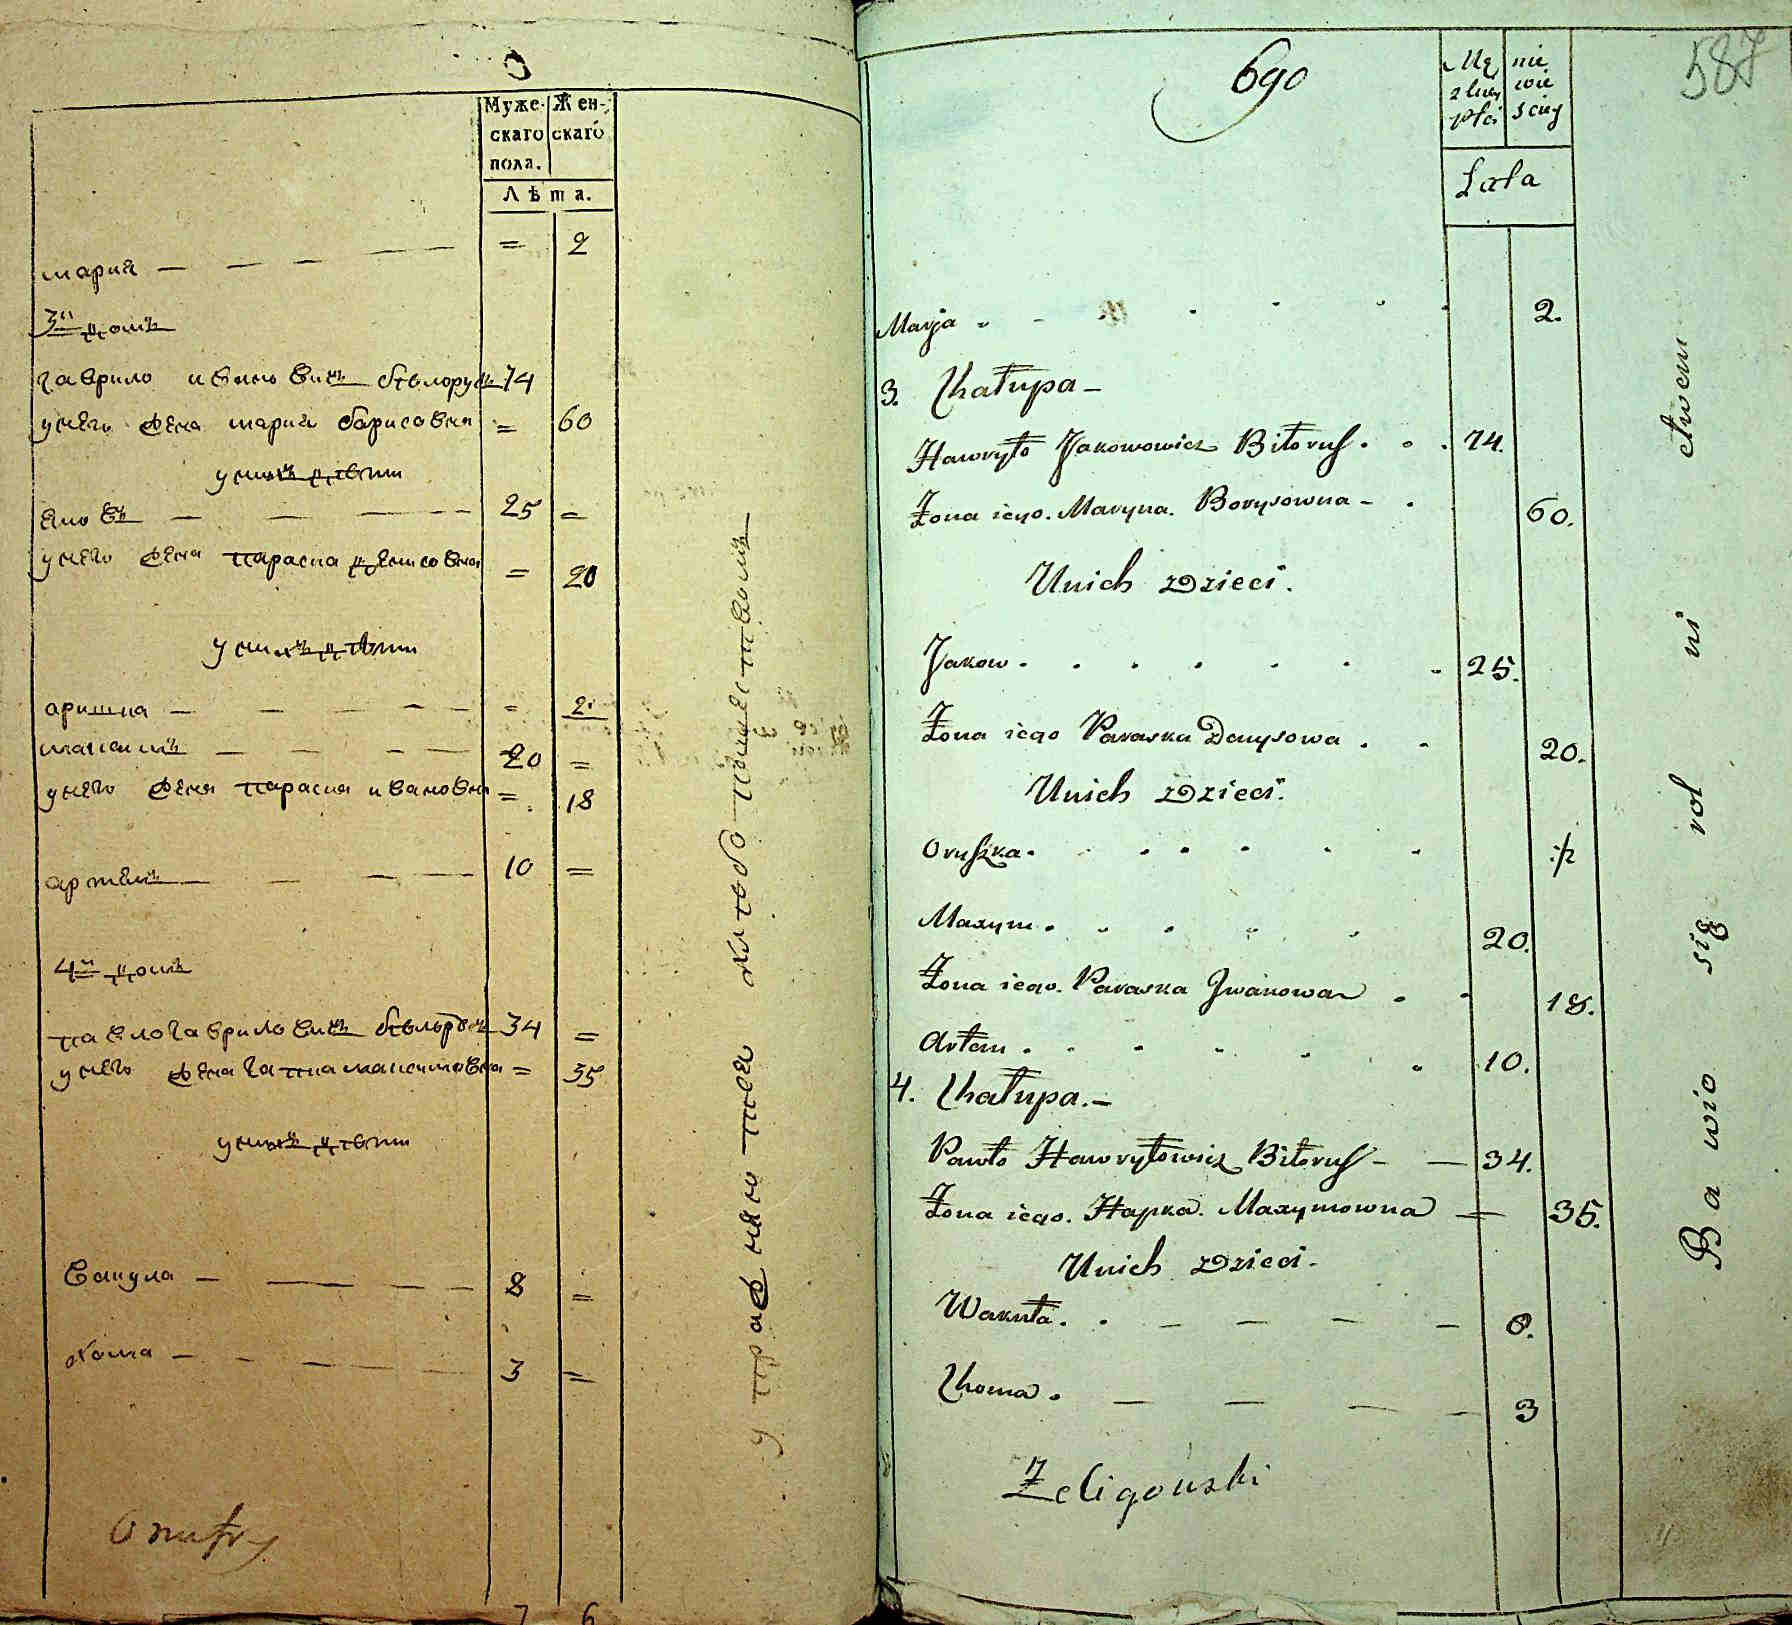 Муже- Жен-
скаго скаго
пола.
Лѣта.
мария — — — — = 2
3й домъ
гаврило иковъ вичъ бѣлорусъ 74
унего жена мария барисовна = 60
унихъ дѣти
яковъ — — — 25 =
унего жена параска денисовна = 20
унихъ дѣти
аришка — — — — = 2
максимъ — — — — 20 =
унего жена параска ивановна = 18
артемъ — — — — 10 =
4й домъ
павло гавриловичъ бѣлорусъ 34 =
унего жена гапка максимовна = 35
унихъ дѣти
вакула — — — — 8 =
хома — — — — 3 =
7 6
упражняютея хлѣбопашествомъ
690
587
Mę nie
zkiey wie
płci sciey
Lata
Marja 2.
3. Chałupa —
Hawryło Jakowowicz Biłorus 74.
Żona iego. Maryna. Borysowna — 60.
Unich Dzieci.
Jakow 25.
Żona iego Paraska Denysowa 20.
Unich Dzieci.
Oryszka
Maxym 20.
Żona iego. Paraska Jwanowa 18.
Artem 10.
4. Chałupa. —
Pawło Hawryłowicz Biłorus — — 34.
Żona iego. Hapka. Maxymowna — 35.
Unich Dzieci.
Wakuła — — — — 8.
Choma — — — — 3
Żeligowski
Bawio się rolnictwem